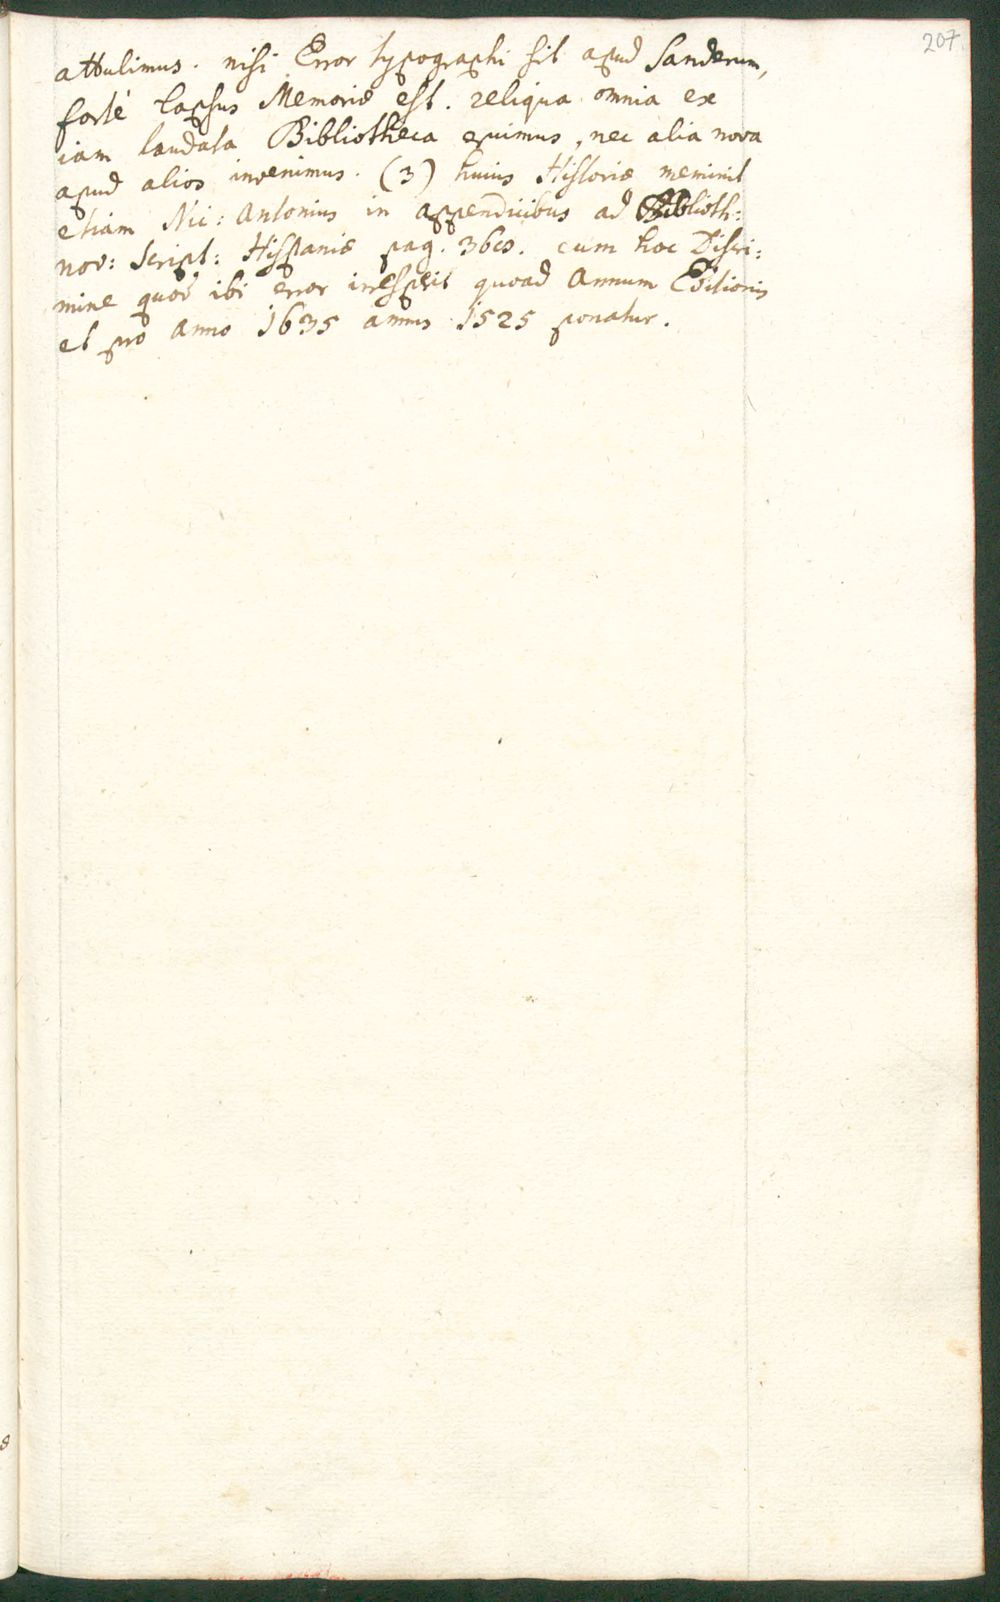 207.
attulimus. nisi Error typographi sit apud Sanderum,
fortè lapsus Memoriæ est. reliqua omnia ex
iam laudata Bibliotheca eruimus, nec alia nova
apud alios invenimus. (3) huius Historiæ meminit
etiam Nic: Antonius in appendicibus ad Biblioth:
nov: Script: Hispaniæ pag. cum hoc Discri:
mine quod ibi error irrepsit quoad Annum Editionis
et pro Anno 1635 annus 1525 ponatur.